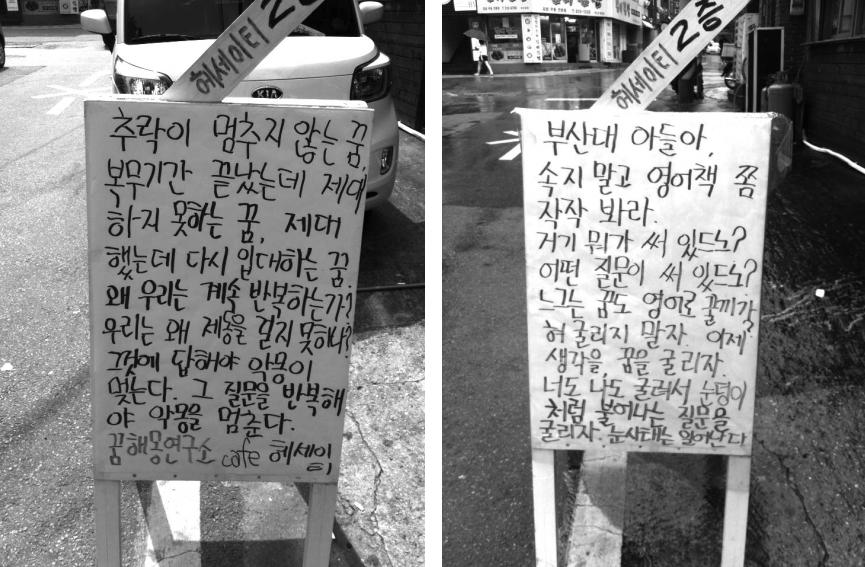 헤세이티 2층
KIA
추락이 멈추지 않는 꿈,
복무기간 끝났는데 제대
하지 못하는 꿈, 제대
했는데 다시 입대하는 꿈.
왜 우리는 계속 반복하는가?
우리는 왜 제동을 걸지 못하나?
그것에 답해야 악몽이
멎는다. 그 질문을 반복해
야 악몽을 멈춘다.
꿈해몽연구소 cafe 헤세이
티
헤세이티 2층
부산대 아들아,
속지 말고 영어책 쫌
작작 봐라.
거기 뭐가 써 있드노?
어떤 질문이 써 있드노?
느그는 꿈도 영어로 꿀끼가,
혀 굴리지 말자. 이제
생각을, 꿈을 굴리자.
너도 나도 굴려서 눈덩이
처럼 불어나는 질문을
굴리자. 눈사태는 일어난다